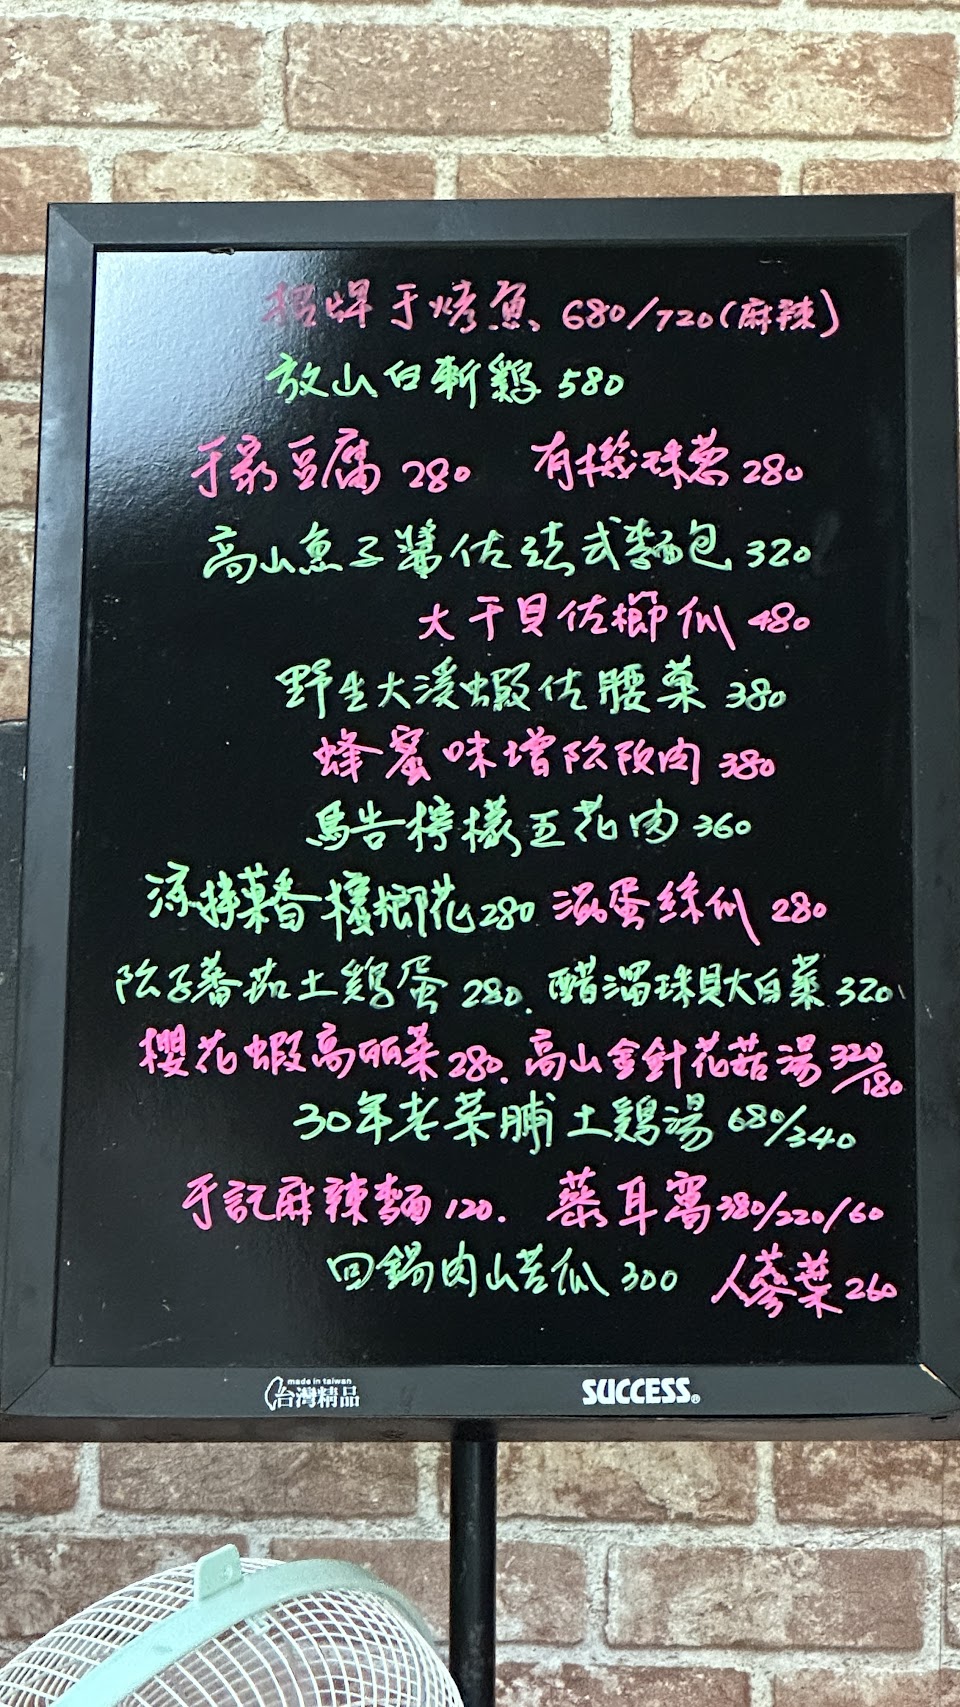 招牌于烤魚 680/720(麻辣)
放山白斬鷄 580
于家豆腐 280 有機珠葱 280
高山魚子醬佐法式麵包 320
大干貝佐櫛瓜 480
野生大溪蝦佐腰菓 380
蜂蜜味增松阪肉 380
馬告檸檬五花肉 360
涼拌菓香檳榔花 280 溜蛋絲瓜 280
松子蕃茄土鷄蛋 280. 醋溜珠貝大白菜 320
櫻花蝦高丽菜 280. 高山金針花菇湯 320/180
30年老菜脯土鷄湯 680/340
于記麻辣麵 120. 燕耳窩 380/220/60
回鍋肉山苦瓜 300 人蔘葉 260
made in taiwan
台灣精品 SUCCESS®